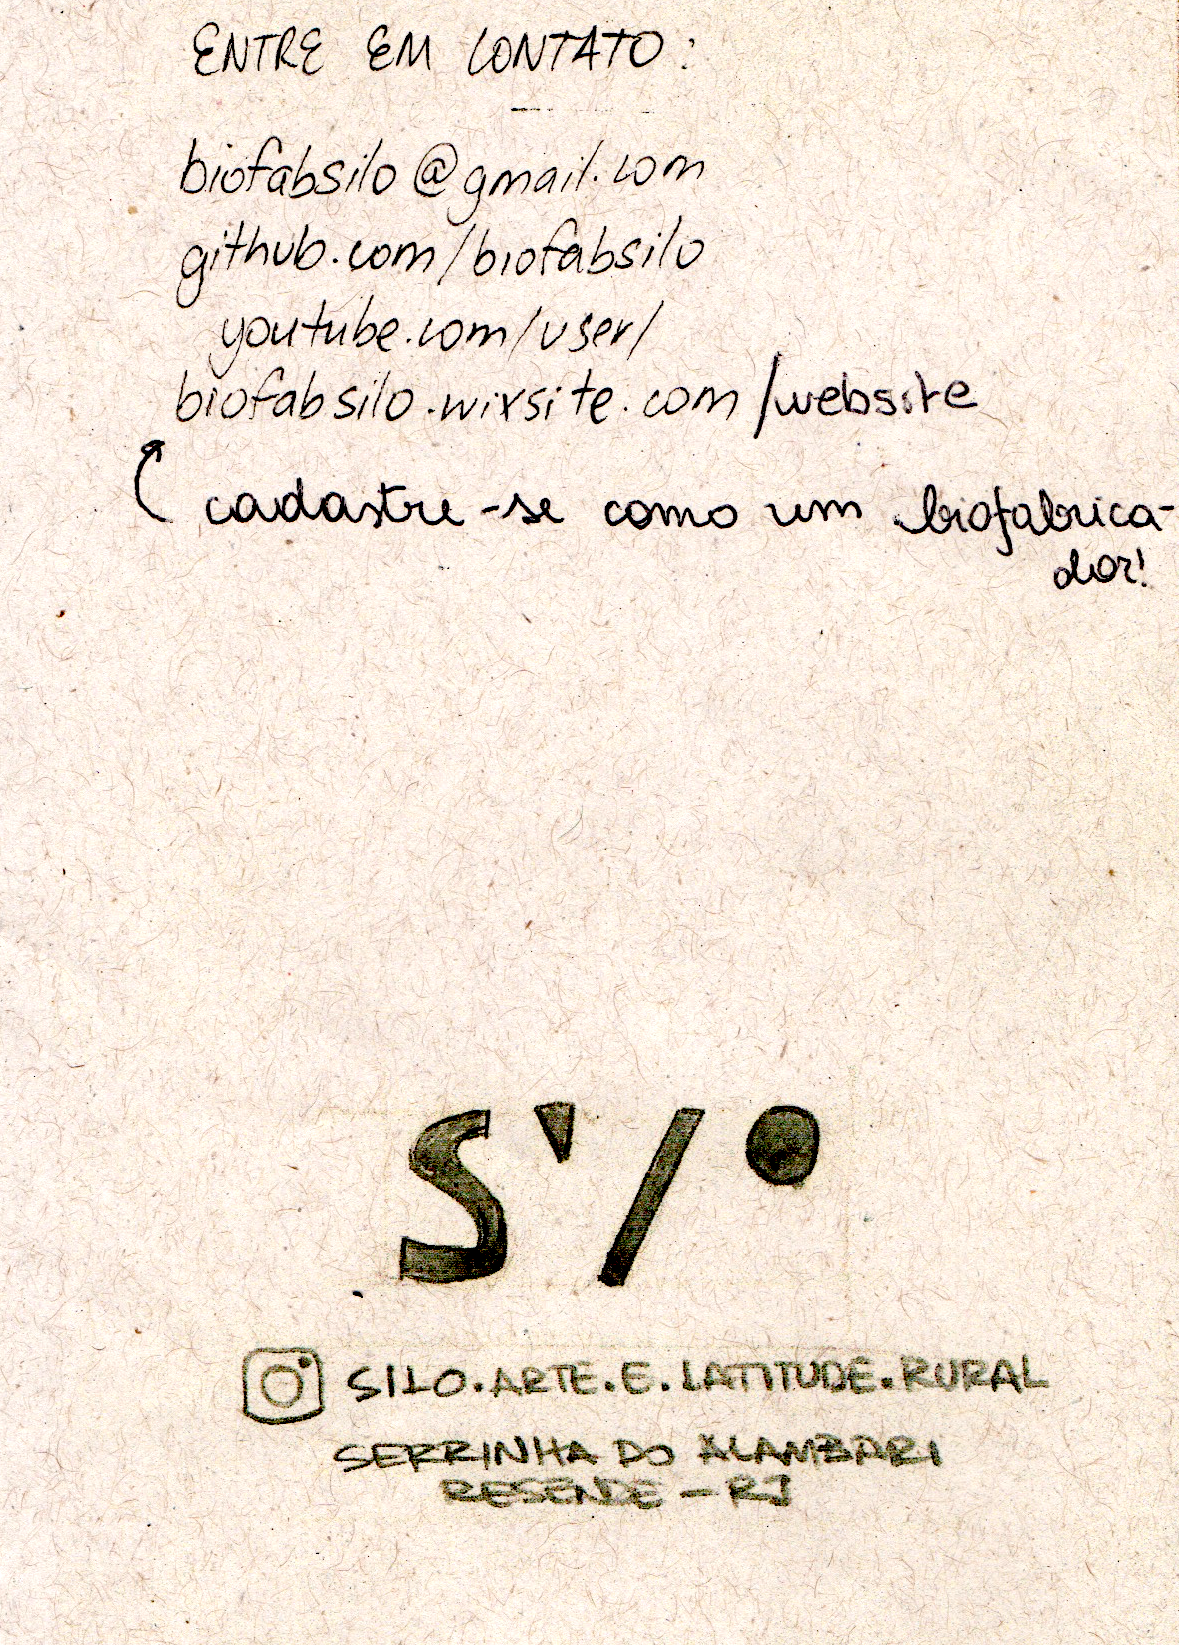 ENTRE EM CONTATO:
biofabsilo@gmail.com
github.com/biofabsilo
youtube.com/user/
biofabsilo.wixsite.com/website
cadastre-se como um biofabrica-
dor!
S'/•
SILO.ARTE.E.LATITUDE.RURAL
SERRINHA DO ALAMBARI
RESENDE - RJ